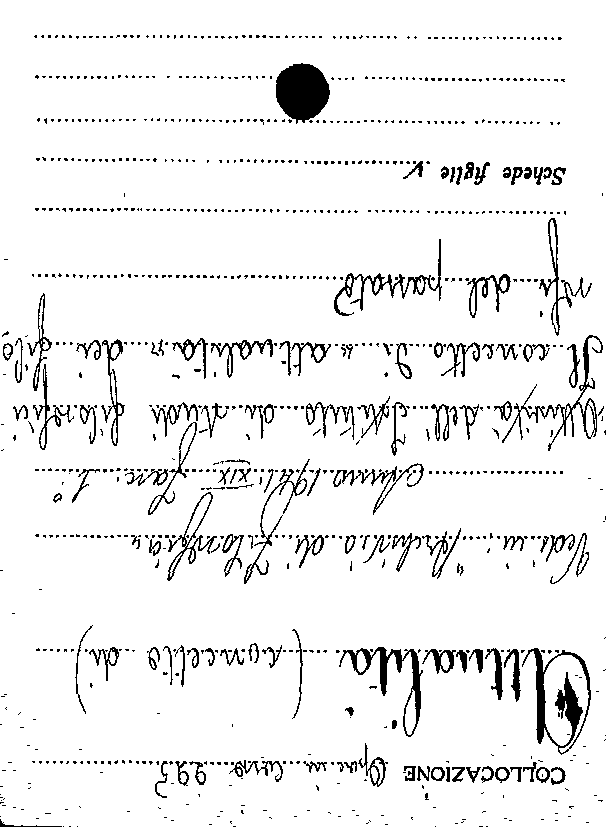 COLLOCAZIONE Opere in corso 293
Attualità (concetto di)
Vedi in: "Archivio di Filosofia"
Anno 1941. XIX Fasc. I°
Attività dell'Istituto di studi filosofici
Il concetto di "attualità" dei filo
sofi del passato
Schede figlie V